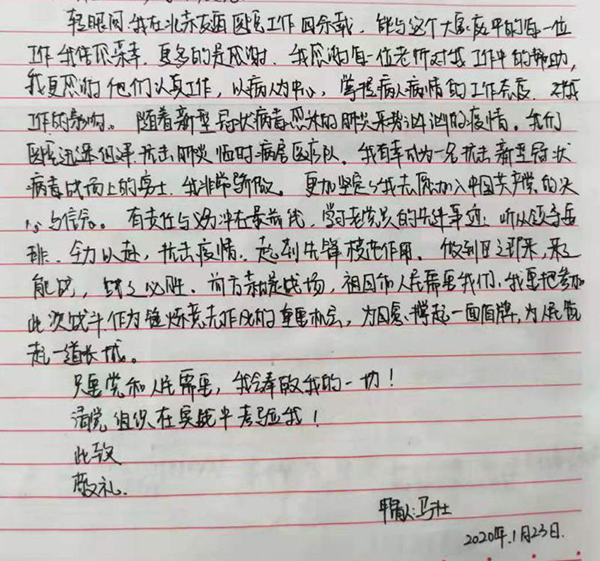 轻眼间我在北京友西医院工作四余载，能与这个大医度中的每一位
工作我倍感荣幸，更多的是感谢，我感谢每一位老师对我工作中的帮助，
我更感谢他们认真工作，以病人为中心，掌握病人病情的工作态度，对我
工作的影响。随着新型冠状病毒感染的肺炎来势汹汹的疫情。我们
医院迅速组评抗击肺炎临时病房医疗队，我有幸成为一名抗击新型冠状
病毒战场上的勇士，我非常骄傲。更加坚定了我志愿加入中国共产党的决
心与信念。有责任与义务冲在最前线，学习老党员的先进事迹，听从领导安
排，全力以赴，抗击疫情，起到先锋模范作用。做到召之即来，来之
能战，战之必胜。前方就是战场，祖国和人民需要我们，我要把参加
此次战斗作为锤炼意志作风的重要机会，为同志撑起一面盾牌，为人民筑
起一道长城。
只要党和人民需要，我会奉献我的一切！
请党组织在实战中考验我！
此致
敬礼
申请人：马壮
2020年.1月23日.